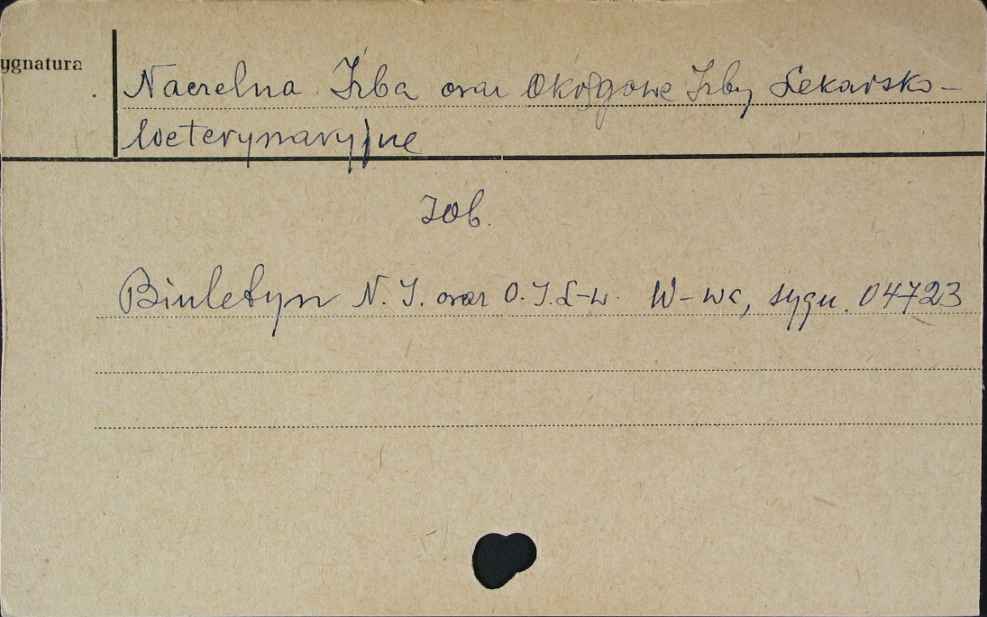 ygnatura
Naczelna Izba oraz Okręgowe Izby Lekarsko-
Weterynaryjne
zob.
Biuletyn N. I. oraz O. I. L-w. W-wa, sygn. 04723